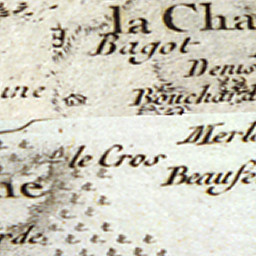 la Cha
Bagot
Denis
une
Bouchard
Merl
le Cros
Beause
ne
rde